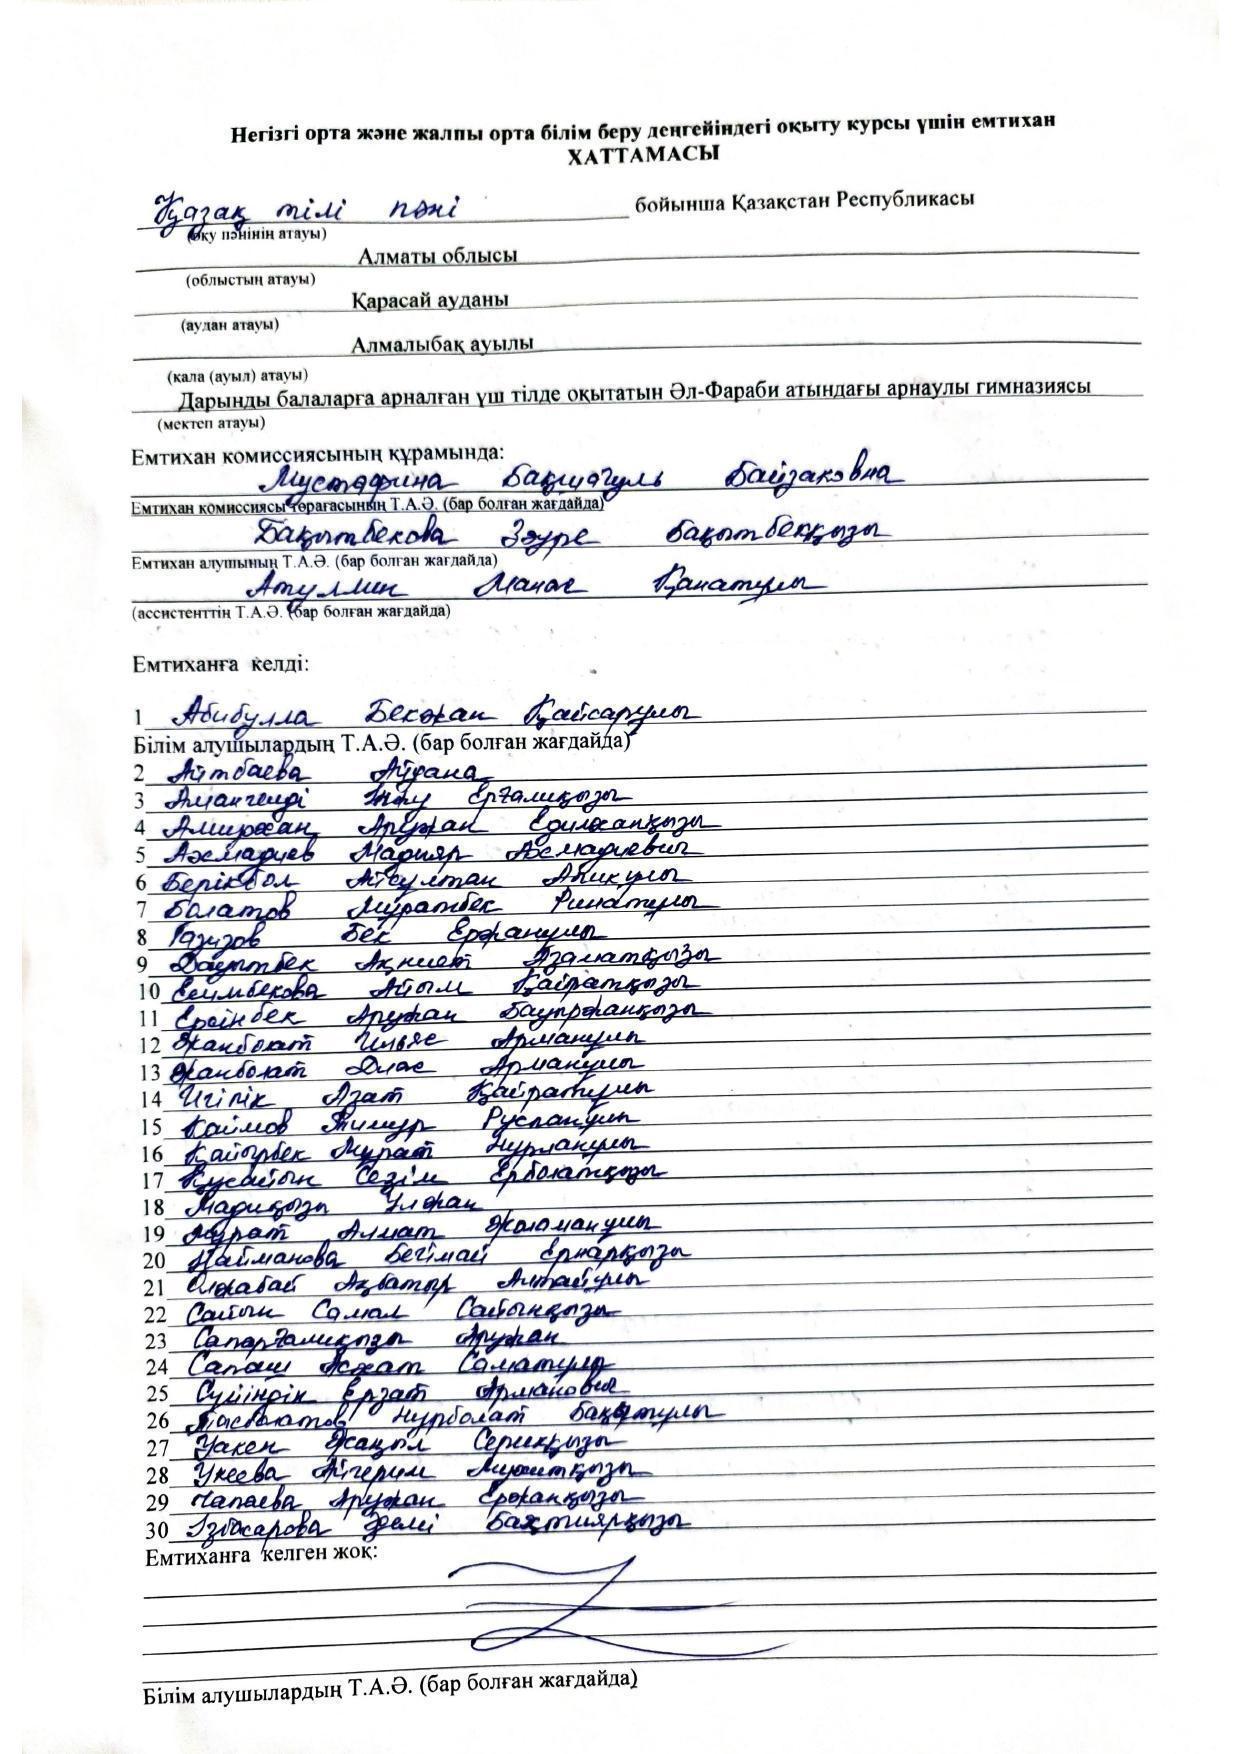 Негізгі орта және жалпы орта білім беру деңгейіндегі оқыту курсы үшін емтихан
ХАТТАМАСЫ
Қазақ тілі пәні бойынша Қазақстан Республикасы
(оқу пәнінің атауы)
Алматы облысы
(облыстың атауы)
Қарасай ауданы
(аудан атауы)
Алмалыбақ ауылы
(кала (ауыл) атауы)
Дарынды балаларға арналған үш тілде оқытатын Әл-Фараби атындағы арнаулы гимназиясы
(мектеп атауы)
Емтихан комиссиясының құрамында:
Мустафина Бақшагуль Байзаковна
Емтихан комиссиясы төрағасының Т.А.Ә. (бар болған жағдайда)
Бақытбекова Зәуре Бақытбекқызы
Емтихан алушының Т.А.Ә. (бар болған жағдайда)
Манас Қанатұлы
(ассистенттің Т.А.Ә. (бар болған жағдайда)
Емтиханға келді:
1 Абибулла Бекжан Қайсарұлы
Білім алушылардың Т.А.Ә. (бар болған жағдайда)
2 Айтбаева Айдана
3 Амангелді Ерғалиқызы
4 Амиржан Аружан Едилжанқызы
5 Ахмадиев Мадияр Ахмадиевич
6 Берікбол Айсұлтан
7 Болатов Мұратбек Ринатұлы
8 Газизов Бек Ержанұлы
9 Дәуітбек Ақниет Азаматқызы
10 Есимбекова Айым Қайратқызы
11 Ерсінбек Аружан Бауыржанқызы
12 Жанболат Ильяс Арманұлы
13 Жанболат Диас Арманұлы
14 Игілік Азат Қайратұлы
15 Каймов Тимур Русланұлы
16 Қайырбек Мұрат Нұрланұлы
17 Құсайын Сезім Ерболатқызы
18 Мадиқызы Ұлжан
19 Мұрат Алмат Жоламанұлы
20 Найманова Бегімай Ернарқызы
21 Олжабай Ақбатыр Алтайұлы
22 Сайын Самал Сайынқызы
23 Сапарғалиқызы Аружан
24 Сапаш Асхат Саматұлы
25 Сүйіндік Ерзат Арманович
26 Тасболатов Нұрболат Бақытұлы
27 Уакен Жаңыл Серикқызы
28 Укеева Айгерим
29 Чапаева Аружан Ержанқызы
30 Ізбасарова Бахтиярқызы
Емтиханға келген жоқ:
Білім алушылардың Т.А.Ә. (бар болған жағдайда)